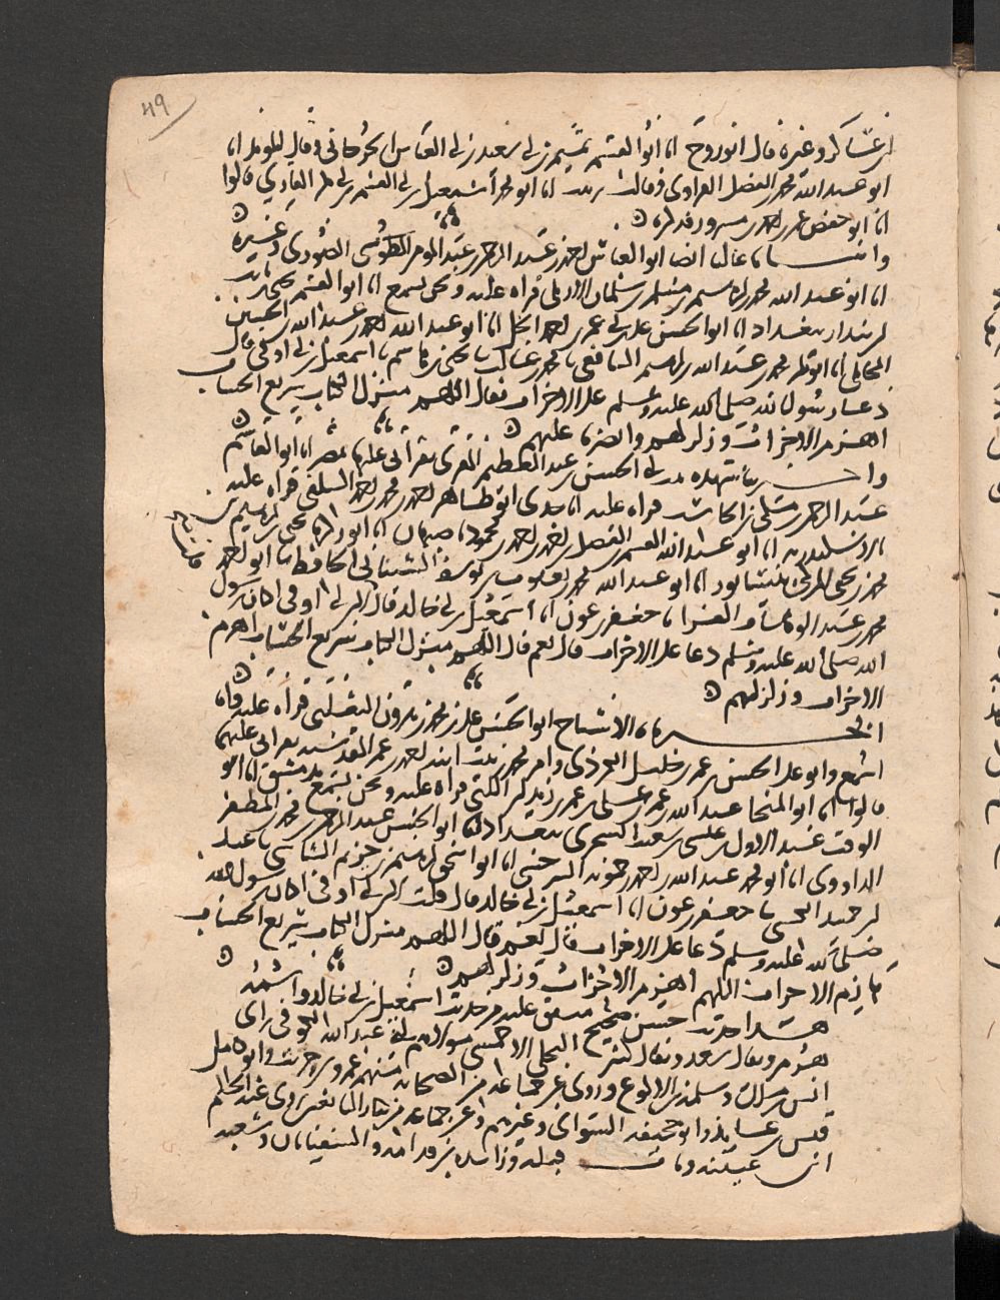 49
عساكر وغيره قال ابو روح انا ابو القسم تميم بن ابي سعيد بن ابي العباس الجرجاني وقال المويد انا
ابو عبد الله محمد بن الفضل الفراوي وقالت زينب انا ابو محمد اسمعيل بن ابي القسم بن ابي بكر القاري قالوا
انا ابو حفص عمر بن احمد بن مسرور فذكره
ابو العباس احمد بن عبد الرحمن بن عبد المومن الصوري وغيره
انا ابو عبد الله محمد بن ابرهيم بن مسلم بن سلمان الاربلي قراه عليه ونحن نسمع انا ابو القسم يحيى بن ثابت
بن بندار ببغداد انا ابو الحسن علي بن احمد انا ابو عبد الله احمد بن عبد الله بن الحسين
المحاملي انا ابو بكر محمد بن عبد الله بن ابرهيم الشافعي محمد بن غالب اسمعيل بن ابي اوفى قال
دعا رسول الله صلى الله عليه وسلم على الاحزاب فقال اللهم منزل الكتاب سريع الحساب
اهزم الاحزاب وزلزلهم وانصرنا عليهم
ابي الحسن بن عبد العظيم بقراتي عليها بمصر انا ابو القاسم
عبد الرحمن بن مكي قراه عليه انا جدي ابو طاهر احمد بن محمد بن احمد السلفي قراه عليه
بالاسكندريه انا ابو عبد الله القسم بن الفضل بن احمد بن احمد بن محمود باصبهان انا ابو زكريا يحيى بن ابرهيم بن
محمد بن يحيى المزكي بنيسابور انا ابو عبد الله محمد بن يعقوب بن يوسف الشيباني الحافظ ابو احمد
محمد بن عبد الوهاب الفرا جعفر بن عون انا اسمعيل بن ابي خالد قال ابن ابي اوفى اكان رسول
الله صلى الله عليه وسلم دعا على الاحزاب قال نعم قال اللهم منزل الكتاب سريع الحساب اهزم
الاحزاب وزلزلهم
الاشياخ ابو الحسن علي بن محمد التغلبي قراه عليه وانا
اسمع وابو علي الحسن بن عمر بن خليل الكردي وام محمد زينب ابنه احمد بن عمر المقدسيه بقراتي عليهما
قالوا انا ابو المنجا عبد الله بن عمر بن علي بن عمر بن زيد بن اللتي قراه عليه ونحن نسمع بدمشق انا ابو
الوقت عبد الاول بن عيسى بن شعيب السجزي ببغداد انا ابو الحسن عبد الرحمن بن محمد بن المظفر
الداودي انا ابو محمد عبد الله بن احمد بن حمويه السرخسي انا ابو اسحق ابرهيم بن خزيم الشاشي عبد
بن حميد الكسي جعفر بن عون انا اسمعيل بن ابي خالد قال قلت لابن ابي اوفى اكان رسول الله
صلى الله عليه وسلم دعا على الاحزاب قال نعم قال اللهم منزل الكتاب سريع الحساب
هازم الاحزاب اللهم اهزم الاحزاب وزلزلهم
هذا حديث حسن صحيح متفق عليه من حديث اسمعيل بن ابي خالد واسمه
هرمز ويقال سعد ويقال كثير البجلي الاحمسي مولاهم ابو عبد الله الكوفي راى
انس بن مالك وسلمه بن الاكوع وروى عن جماعه من الصحابه منهم عمرو بن حريث وابو كاهل
قيس بن عايذ وابو جحيفه السوائي وغيرهم وعن جماعه من كبار التابعين روى عنه الحكم
ابن عتيبه ومات قبله وزايده بن قدامه والسفيانان وشعبه